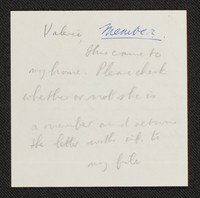 Valerie Member
This came to
my home. Please check
whether or not she is
a member and return
the letter with it to
my file